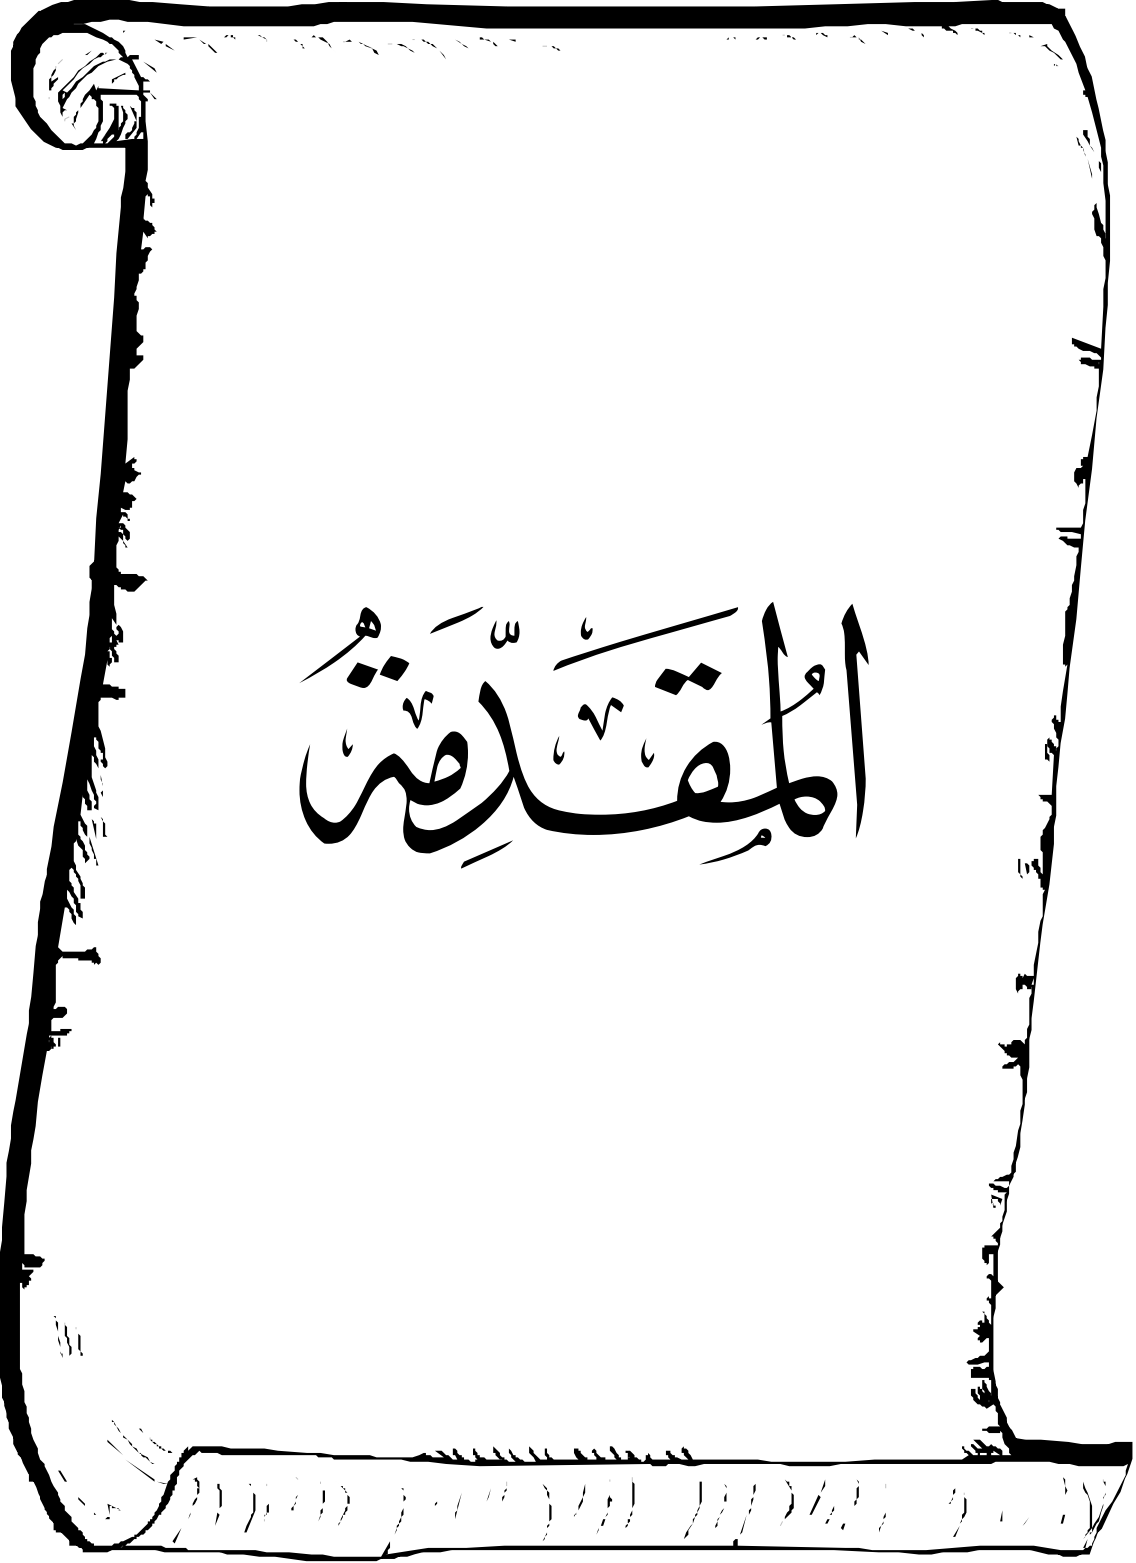 المُقَدِّمَةُ